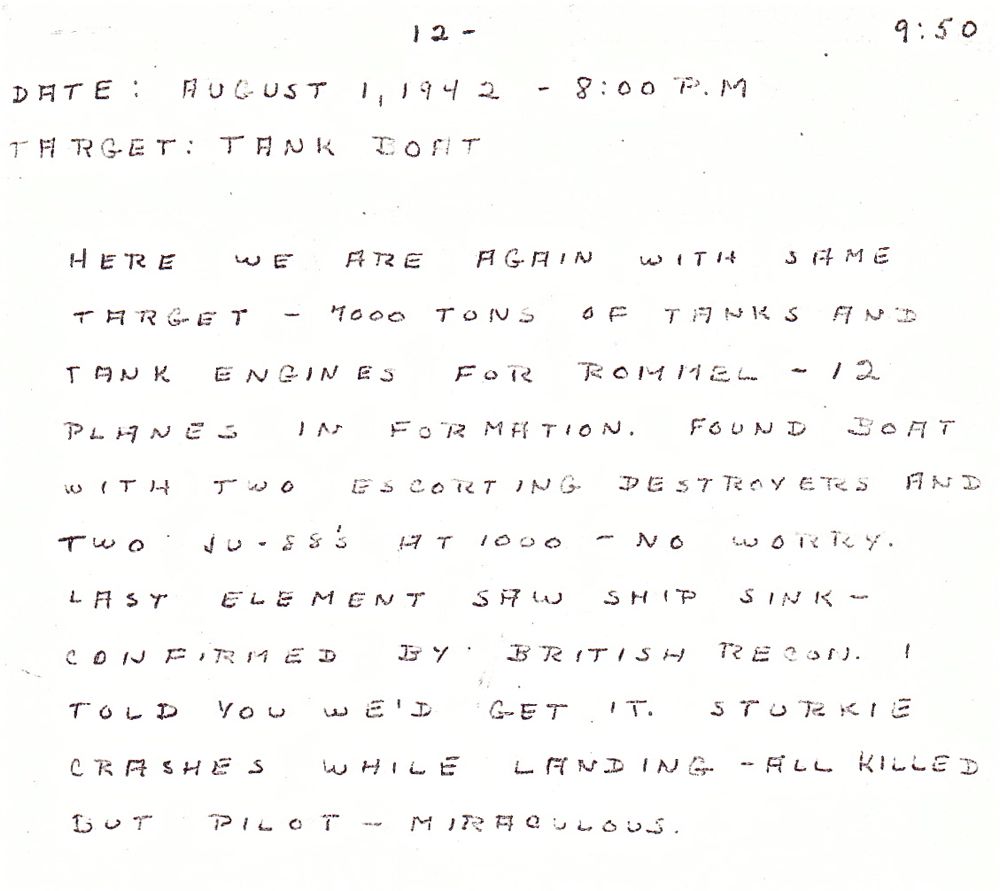 12- 9:50
DATE: AUGUST 1, 1942 - 8:00 P.M
TARGET: TANK BOAT
HERE WE ARE AGAIN WITH SAME
TARGET - 7000 TONS OF TANKS AND
TANK ENGINES FOR ROMMEL - 12
PLANES IN FORMATION. FOUND BOAT
WITH TWO ESCORTING DESTROYERS AND
TWO JU-88's AT 1000 - NO WORRY.
LAST ELEMENT SAW SHIP SINK -
CONFIRMED BY BRITISH RECON. I
TOLD YOU WE'D GET IT. STURKIE
CRASHES WHILE LANDING - ALL KILLED
BUT PILOT - MIRACULOUS.